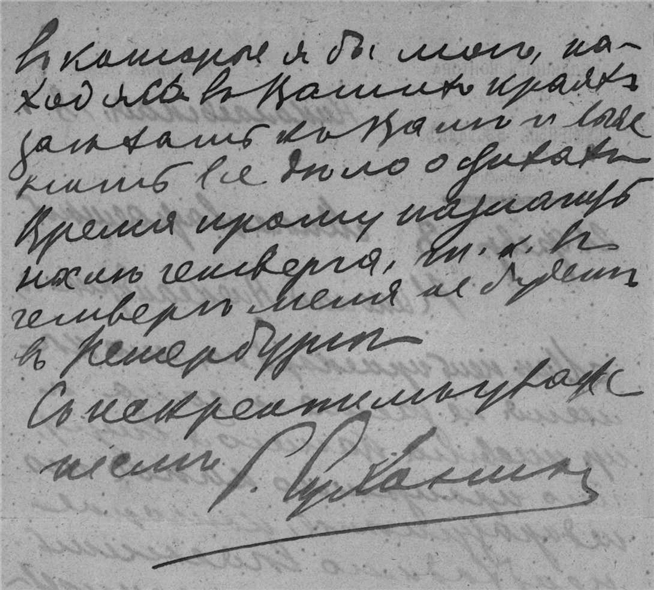 в которые я бы могъ, на-
ходясь въ Вашихъ краяхъ
заѣхать къ Вамъ и выяс
нить все дѣло о
Время прошу назначить
кромѣ четверга, т. к. въ
четвергъ меня не будетъ
въ Петербургѣ
Съ искреннимъ уваже
ніемъ